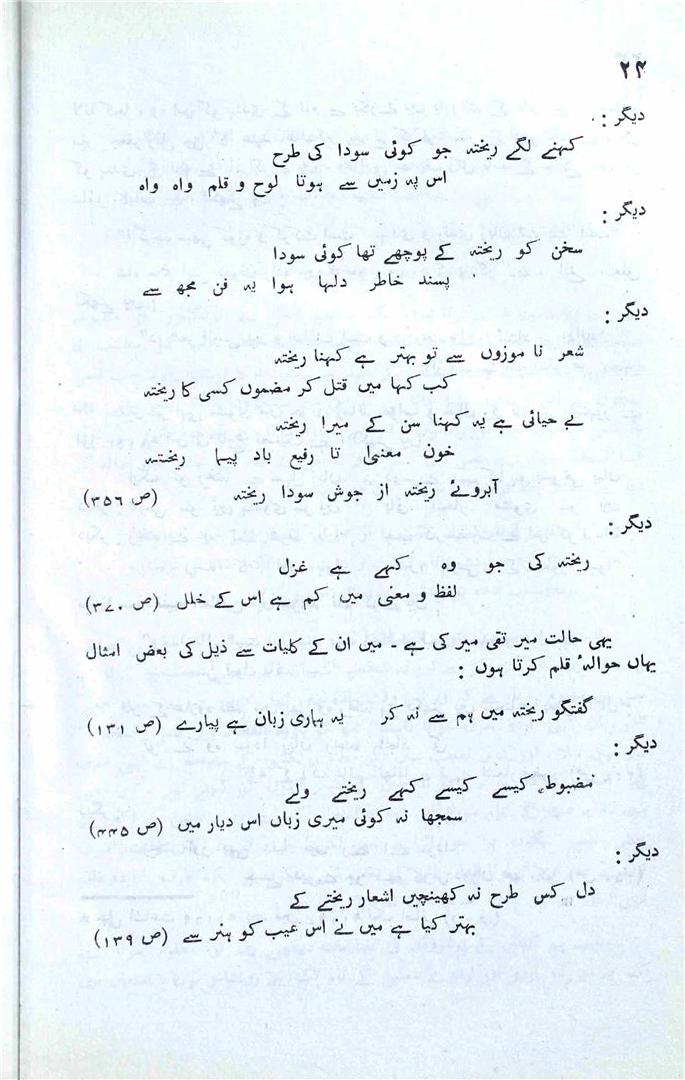 ۲۴
دیگر :
کہنے لگے ریختہ جو کوئی سودا کی طرح
اس پہ زمیں سے ہوتا لوح و قلم واہ واہ
دیگر :
سخن کو ریختہ کے پوچھے تھا کوئی سودا
پسند خاطر دلہا ہوا یہ فن مجھ سے
دیگر :
شعر نا موزوں سے تو بہتر ہے کہنا ریختہ
کب کہا میں قتل کر مضموں کسی کا ریختہ
بے حیائی ہے یہ کہنا سن کے میرا ریختہ
خون معنیٰ تا رفیع باد پیما ریختہ
آبروئے ریختہ از جوش سودا ریختہ (ص ۳۵۶)
دیگر :
ریختہ کی جو وہ کہے ہے غزل
لفظ و معنی میں کم ہے اس کے خلل (ص ۳۷۰)
یہی حالت میر تقی میر کی ہے ۔ میں ان کے کلیات سے ذیل کی بعض امثال
یہاں حوالۂ قلم کرتا ہوں :
گفتگو ریختہ میں ہم سے نہ کر یہ ہماری زبان ہے پیارے (ص ۱۳۱)
دیگر :
مضبوط کیسے کیسے کہے ریختے ولے
سمجھا نہ کوئی میری زباں اس دیار میں (ص ۴۴۵)
دیگر :
دل کس طرح نہ کھینچیں اشعار ریختے کے
بہتر کیا ہے میں نے اس عیب کو ہنر سے (ص ۱۳۹)